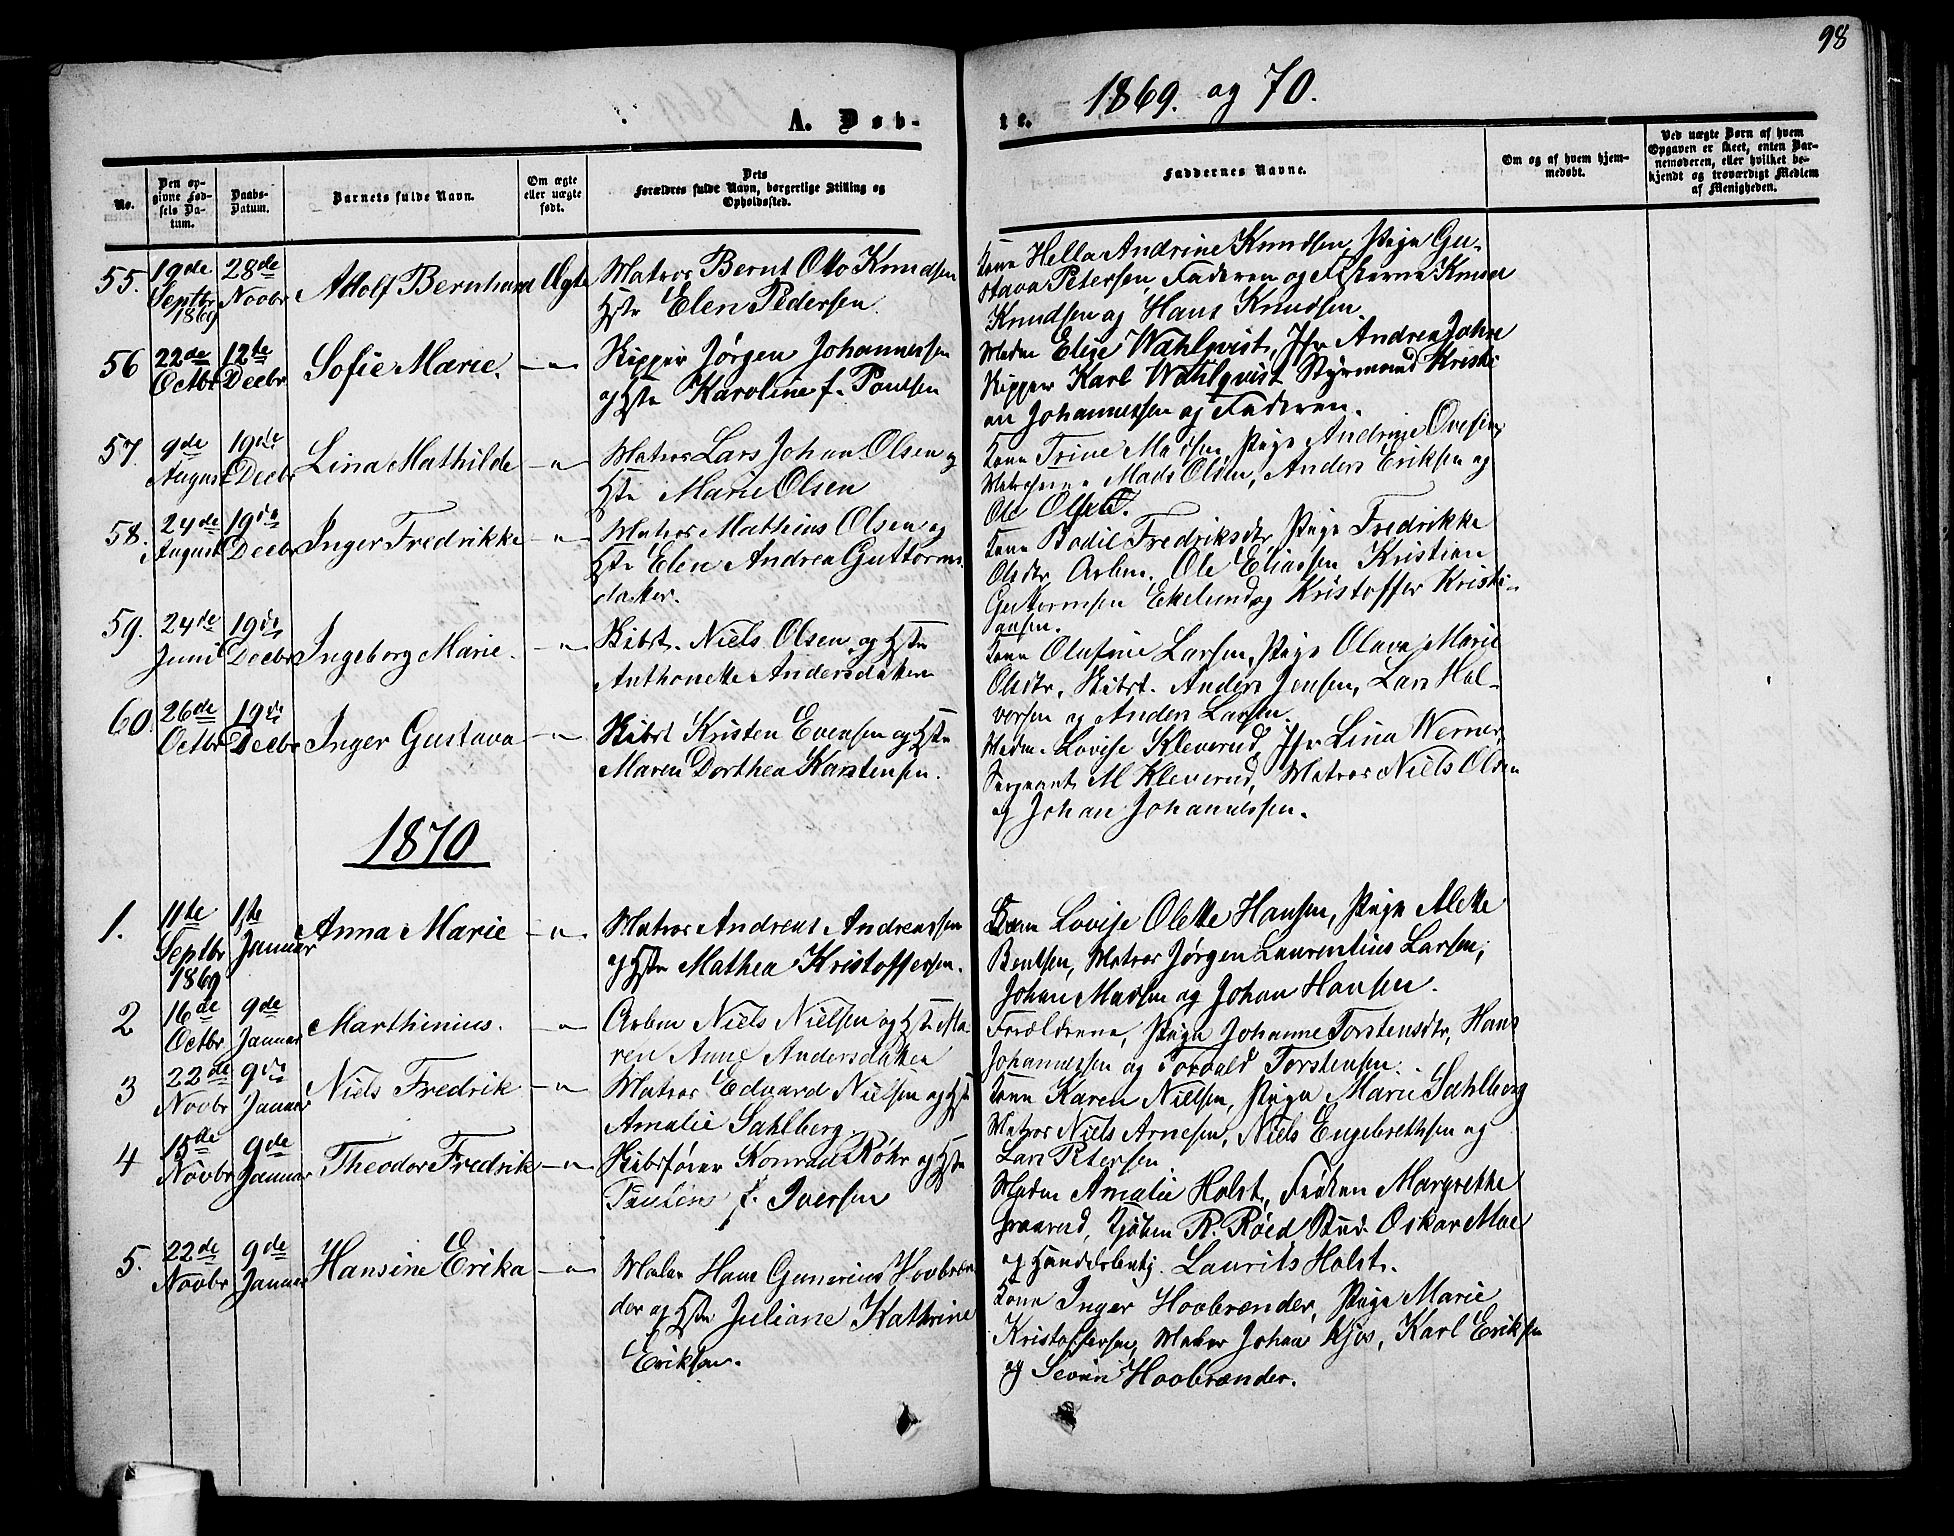 98
1869. og 70.
A. Døb-
te.
No.
Den op-
givne Fød-
sels Da-
tum.
Daabs-
Datum.
Barnets fulde Navn.
Om ægte
eller uægte
født.
Dets
Forældres fulde Navn, borgerlige Stilling og
Opholdssted.
Faddernes Navne.
Om og af hvem hjem-
medøbt.
Ved uægte Børn af hvem
Opgaven er skeet, enten Bar-
nemoderen, eller hvilket be-
kjendt og troværdigt Medlem
af Menigheden.
55. 19de Septbr 1869 28de Novbr Adolf Bernhard Ægte
Matros Bernt Otto Knudsen
Hstr Elen Pedersen.
Kone Hella Andrine Knudsen, Pige Gu-
stava Petersen, Faderen og Fiskerne Knud
Knudsen og Hans Knudsen.
56 22de Octbr 12te Decbr Sofie Marie. -"-
Skipper Jørgen Johannessen
og Hstr Karoline f. Paulsen
Madm Elise Wahlqvist, Jfr Andrea Johne
Skipper Karl Wahlqvist Styrmand Kristi
an Johannessen og Faderen.
57. 9de August 19de Decbr Lina Mathilde -"-
Matros Lars Johan Olsen og
Hstr Marie Olsen
Kone Trine Madsen, Pige Andrine Ovesen,
Matroserne Mads Olsen, Anders Eriksen og
Ole Olsen.
58. 24de August 19de Decbr Inger Fredrikke -"-
Matros Mathias Olsen og
Hstr Elen Andrea Guttorms-
datter.
Kone Bodil Fredriksdtr, Pige Fredrikke
Olsdtr, Arbm. Ole Eliassen, Kristian
Guttormsen Ekelund og Kristoffer Kristi-
ansen.
59. 24de Juni 19de Decbr Ingeborg Marie. -"-
Skibst. Niels Olsen og Hstr
Anthonette Andersdatter
Kone Olufine Larsen, Pige Olava Marie
Olsdtr, Skibst. Anders Jensen, Lars Hal-
vorsen og Anders Larsen.
60. 26de Octbr 19de Decbr Inger Gustava -"-
Skibst Kristen Evensen og Hstr
Maren Dorthea Karstensen.
Madm. Lovise Kleverud, Jfr Lina Werner,
Sergeant M Kleverud, Matros Niels Olsen
og Johan Johannessen.
1870
1. 11te Septbr 1869 1ste Januar Anna Marie -"-
Matros Andreas Andreassen
og Hstr Mathea Kristoffersen.
Kone Lovise Olette Hansen, Pige Alette
Bentsen, Matros Jørgen Laurentius Larsen,
Johan Madsen og Johan Hansen.
2 16de Octbr 9de Januar Marthinius. -"-
Arbm Niels Nielsen og Hstr Ma-
ren Anne Andersdatter
Forældrene, Pige Johanne Torstensdtr, Hans
Johannessen og Torvald Torstensen.
3 22de Novbr 9de Januar Niels Fredrik -"-
Matros Edvard Nielsen og Hstr
Amalie Sahlberg.
Kone Karen Nielsen, Pige Marie Sahlberg
Matros Niels Arnesen, Niels Engebrethsen og
Lars Petersen
4 15de Novbr 9de Januar Theodor Fredrik -"-
Skibsfører Konrad Röhr og Hstr
Pauline f. Iversen
Madm Amalie Holst, Frøken Margrethe
Kjøbm R. Røed Stud. Oskar Moe
og Handelsbetj. Laurits Holst.
5. 22de Novbr 9de Januar Hansine Erika -"-
Maler Hans Gunerius Hovbræn-
der og Hstr Juliane Kathrine
Eriksen.
Kone Inger Hovbrænder, Pige Marie
Kristoffersen, Maler Johan Kjos, Karl Eriksen
og Severin Hovbrænder.